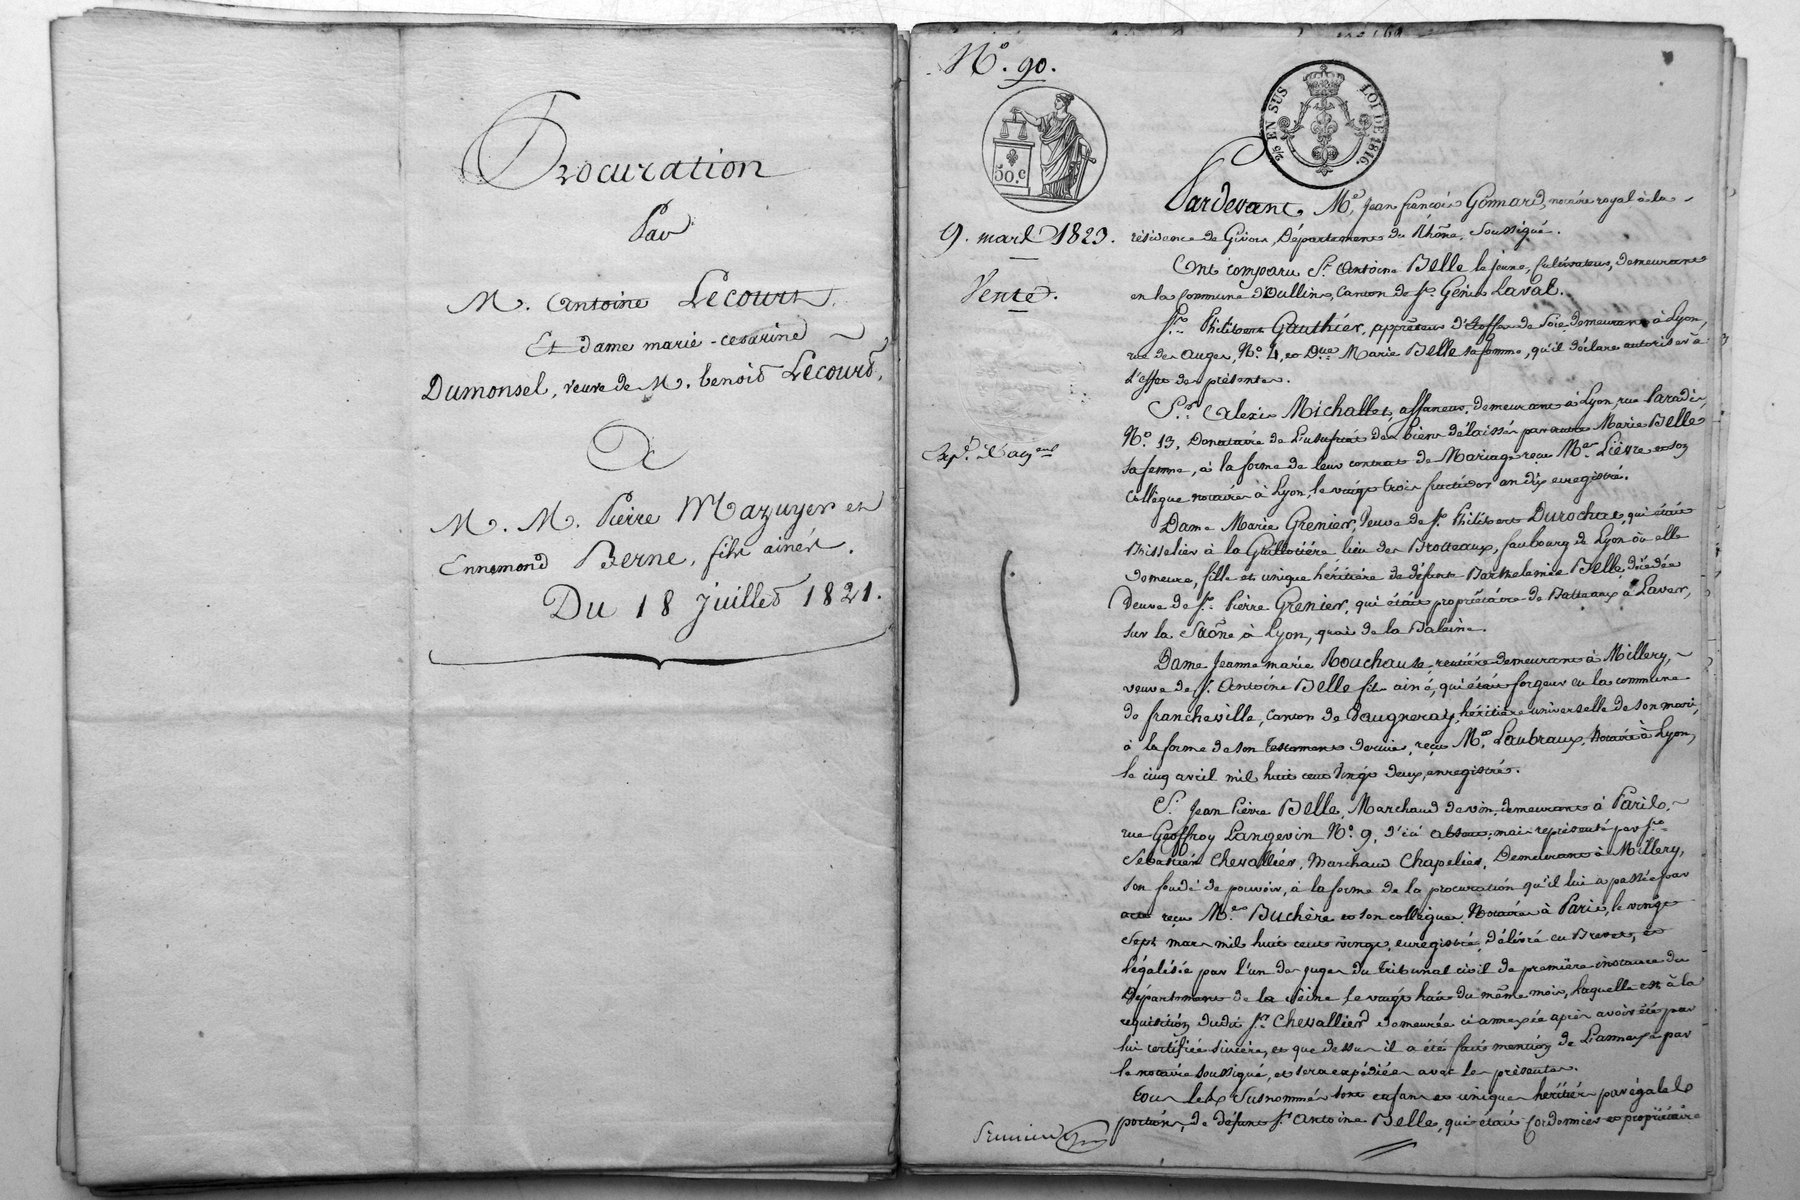 Procuration
Par
M. Antoine Lecourt,
Et dame marie-cesarine
Dumonsel, veuve de M. benoit Lecourt,
A
M. M. Pierre Mazuyer et
Ennemond Berne, fils ainés.
Du 18 Juillet 1821.
No. 90.
50.c
EN SUS LOI DE 1816.
9. mars 1823.
Vente.
Pardevant Me. Jean françois Gonnard, notaire royal à la
résidence de Givors, Département du Rhône, soussigné.
Ont comparu Sr. Antoine Belle le jeune, Cultivateur, demeurant
en la Commune d'Oullins, Canton de St. Genis Laval.
Sr. Philibert Gauthier, apprêteur d'étoffes de soie demeurant à Lyon,
rue des auges, No. 4, et Dme. Marie Belle sa femme, qu'il déclare autoriser à
l'effet des présentes.
Sr. Alexis Michallet, affaneur, demeurant à Lyon, rue Paradis,
No. 13, Donataire de l'usufruit des biens délaissés par autre Marie Belle
sa femme, à la forme de leur contrat de Mariage reçu Me. Lièvre et son
Collègue notaires à Lyon, le vingt trois fructidor an dix enregistré.
Dame Marie Grenier, Veuve de Sr. Philibert Durochat, qui était
à la Guillotière lieu des Brotteaux, faubourg de Lyon où elle
demeure, fille et unique héritière de défunte Barthelemie Belle, décédée
Veuve de Sr. Pierre Grenier, qui était propriétaire de Batteaux à Laver,
sur la Saône à Lyon, quai de la Baleine.
Dame Jeanne marie Bouchause rentière demeurant à Millery,
veuve de Sr. Antoine Belle fils ainé, qui était forgeur en la commune
de francheville, Canton de Vaugneray, héritière universelle de son mari,
à la forme de son testament dernier, reçu Me. Laubraux, Notaire à Lyon,
le cinq avril mil huit cent vingt deux, enregistré.
Sr. Jean Pierre Belle, Marchand de vin, demeurant à Paris,
rue Geoffroy Langevin No. 9, d'ici absent, mais représenté par Sr.
Sébastien Chevallier, Marchand Chapelier, Demeurant à Millery,
son fondé de pouvoir, à la forme de la procuration qu'il lui a passée par
acte reçu Me. Buchère et son collègue, Notaires à Paris, le vingt
sept mars mil huit cent vingt, enregistré, délivré en Brevet, et
légalisée par l'un des juges du tribunal civil de première instance du
Département de la Seine le vingt huit du même mois, laquelle est à la
requisition dudit Sr. Chevallier demeurée ci annexée après avoir été par
lui certifiée sincère, et que dessus il a été fait mention de l'annexe par
le notaire soussigné, et sera expédiée avec les présentes.
tous les susnommés sont enfans et uniques héritiers par égales
portions, de défunt Sr. Antoine Belle, qui était Cordonnier et propriétaire